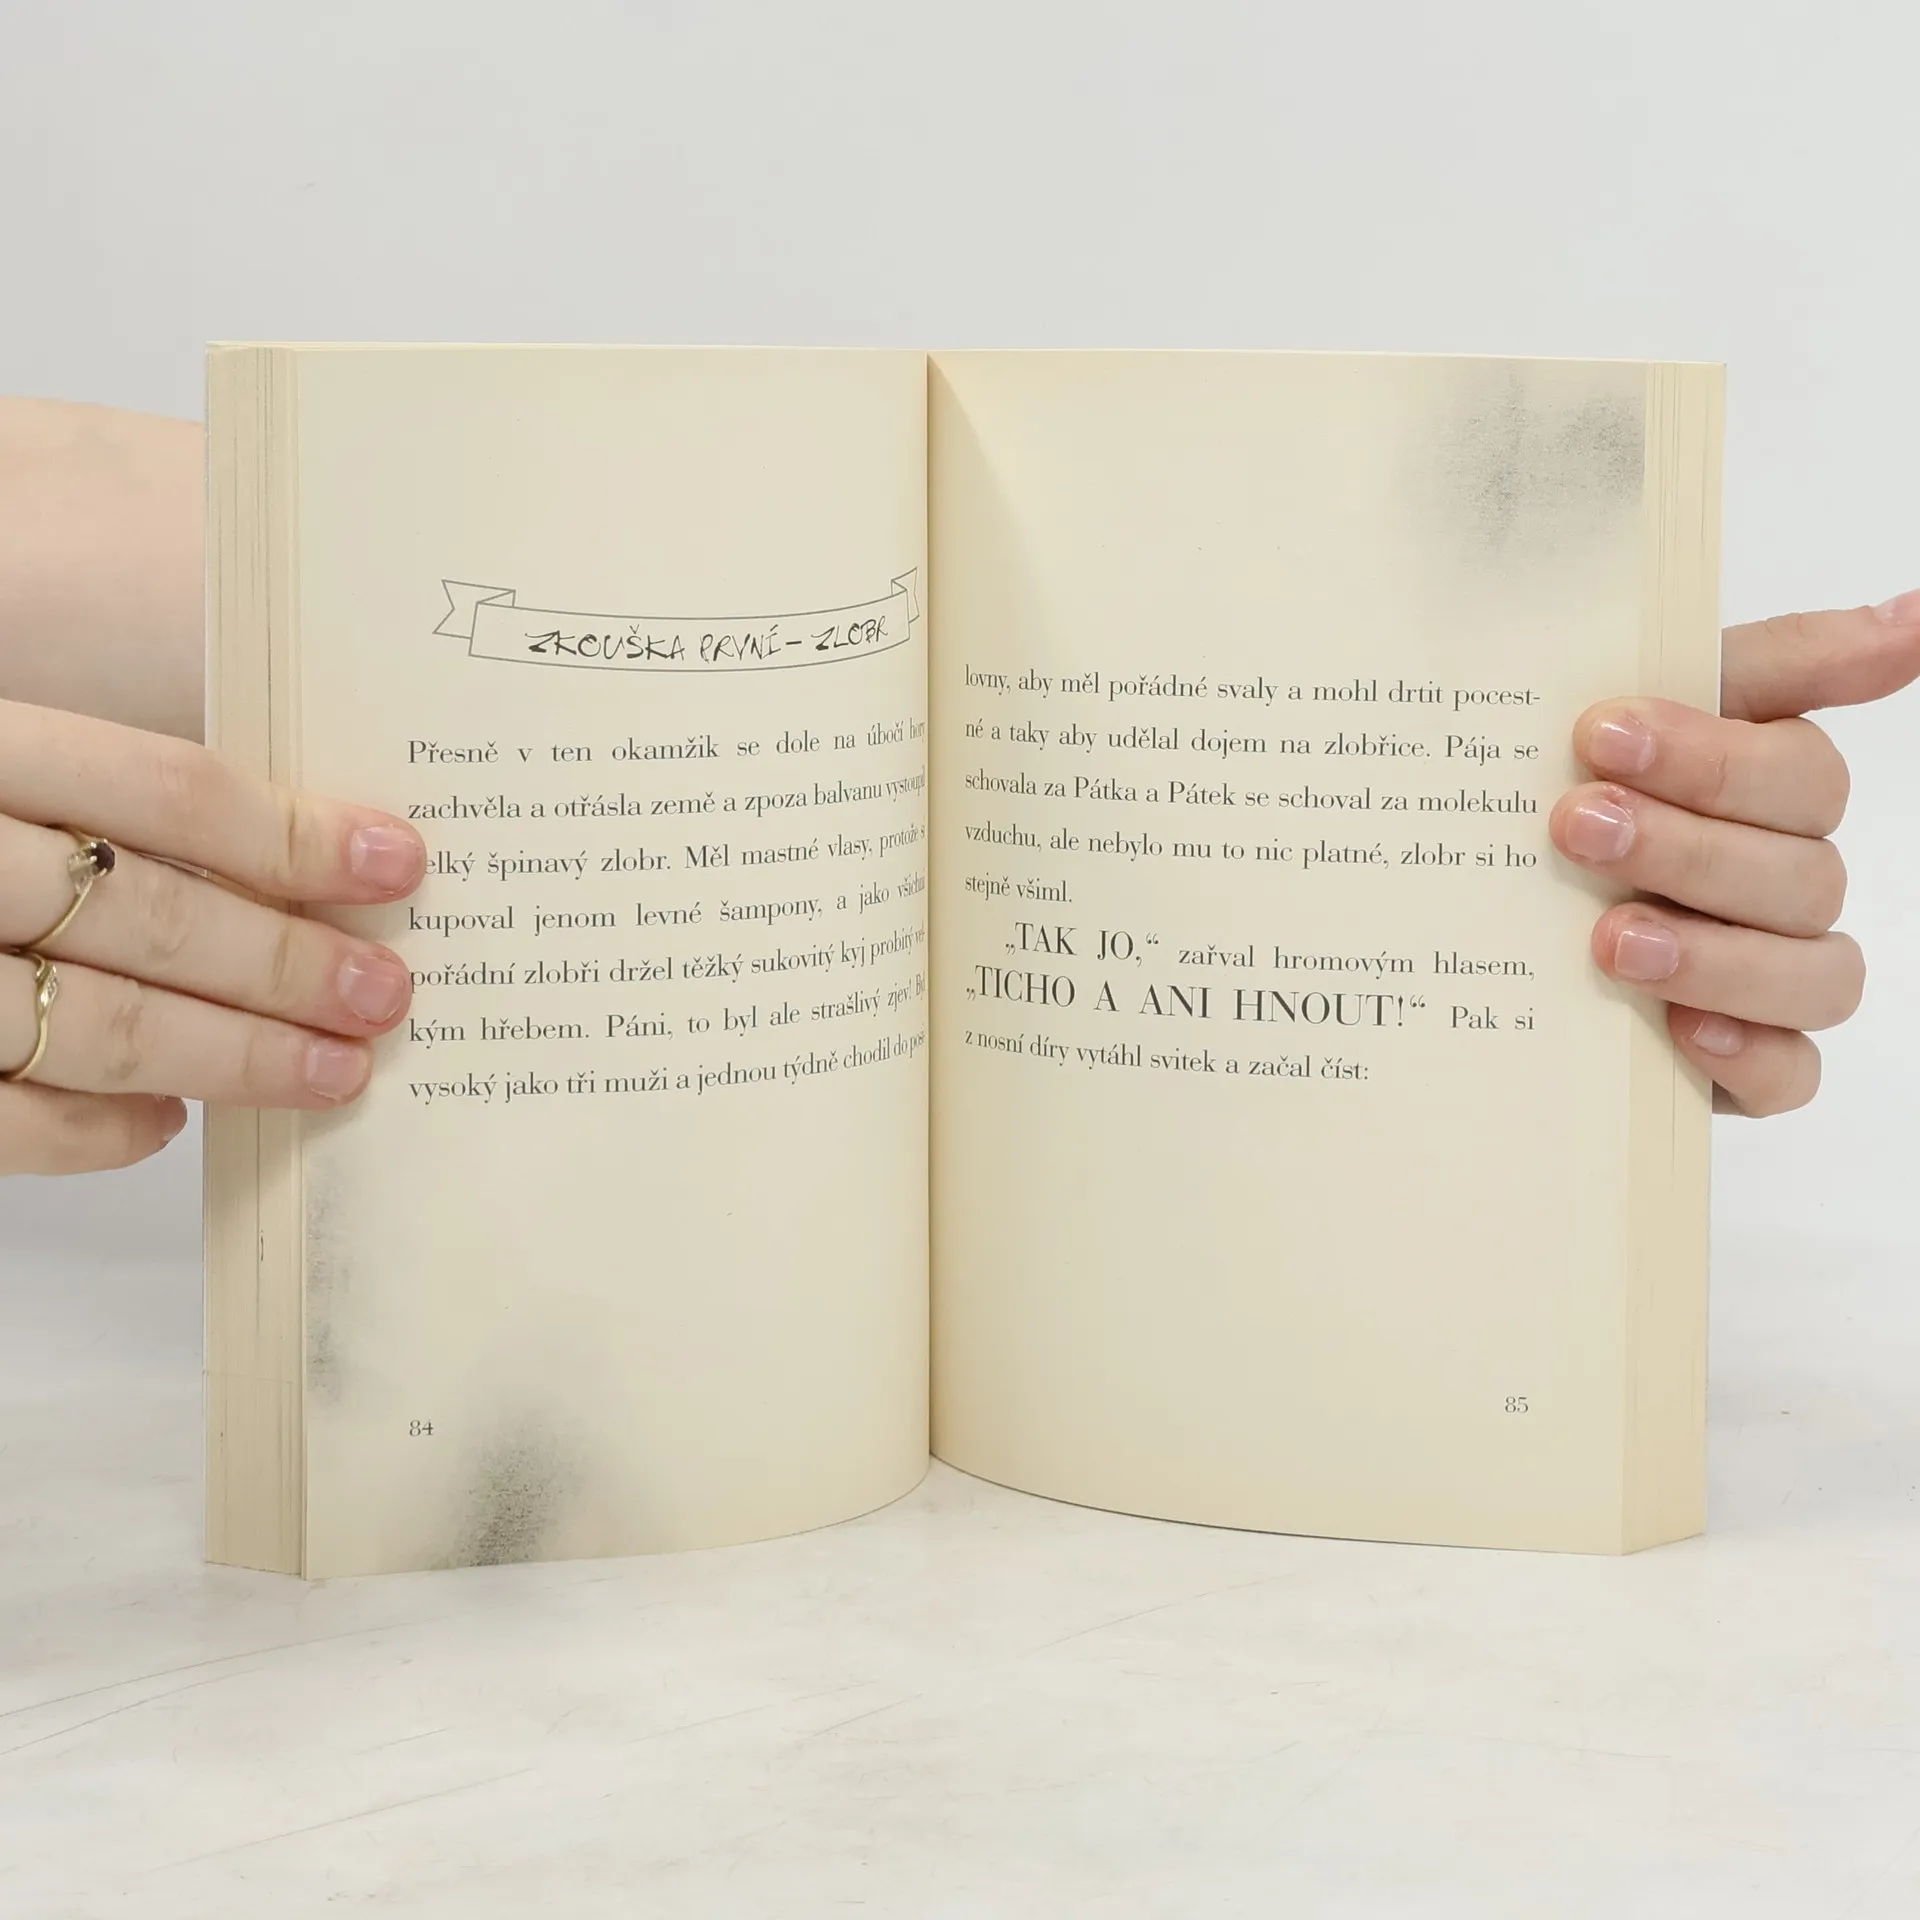 ZKOUŠKA PRVNÍ – ZLOBR
Přesně v ten okamžik se dole na úbočí hory
zachvěla a otřásla země a zpoza balvanu vystoupil
elký špinavý zlobr. Měl mastné vlasy, protože si
kupoval jenom levné šampony, a jako všichni
pořádní zlobři držel těžký sukovitý kyj probitý vel-
kým hřebem. Páni, to byl ale strašlivý zjev! Byl
vysoký jako tři muži a jednou týdně chodil do posi-
84
lovny, aby měl pořádné svaly a mohl drtit pocest-
né a taky aby udělal dojem na zlobřice. Pája se
schovala za Pátka a Pátek se schoval za molekulu
vzduchu, ale nebylo mu to nic platné, zlobr si ho
stejně všiml.
„TAK JO,“ zařval hromovým hlasem,
„TICHO A ANI HNOUT!“ Pak si
z nosní díry vytáhl svitek a začal číst:
85